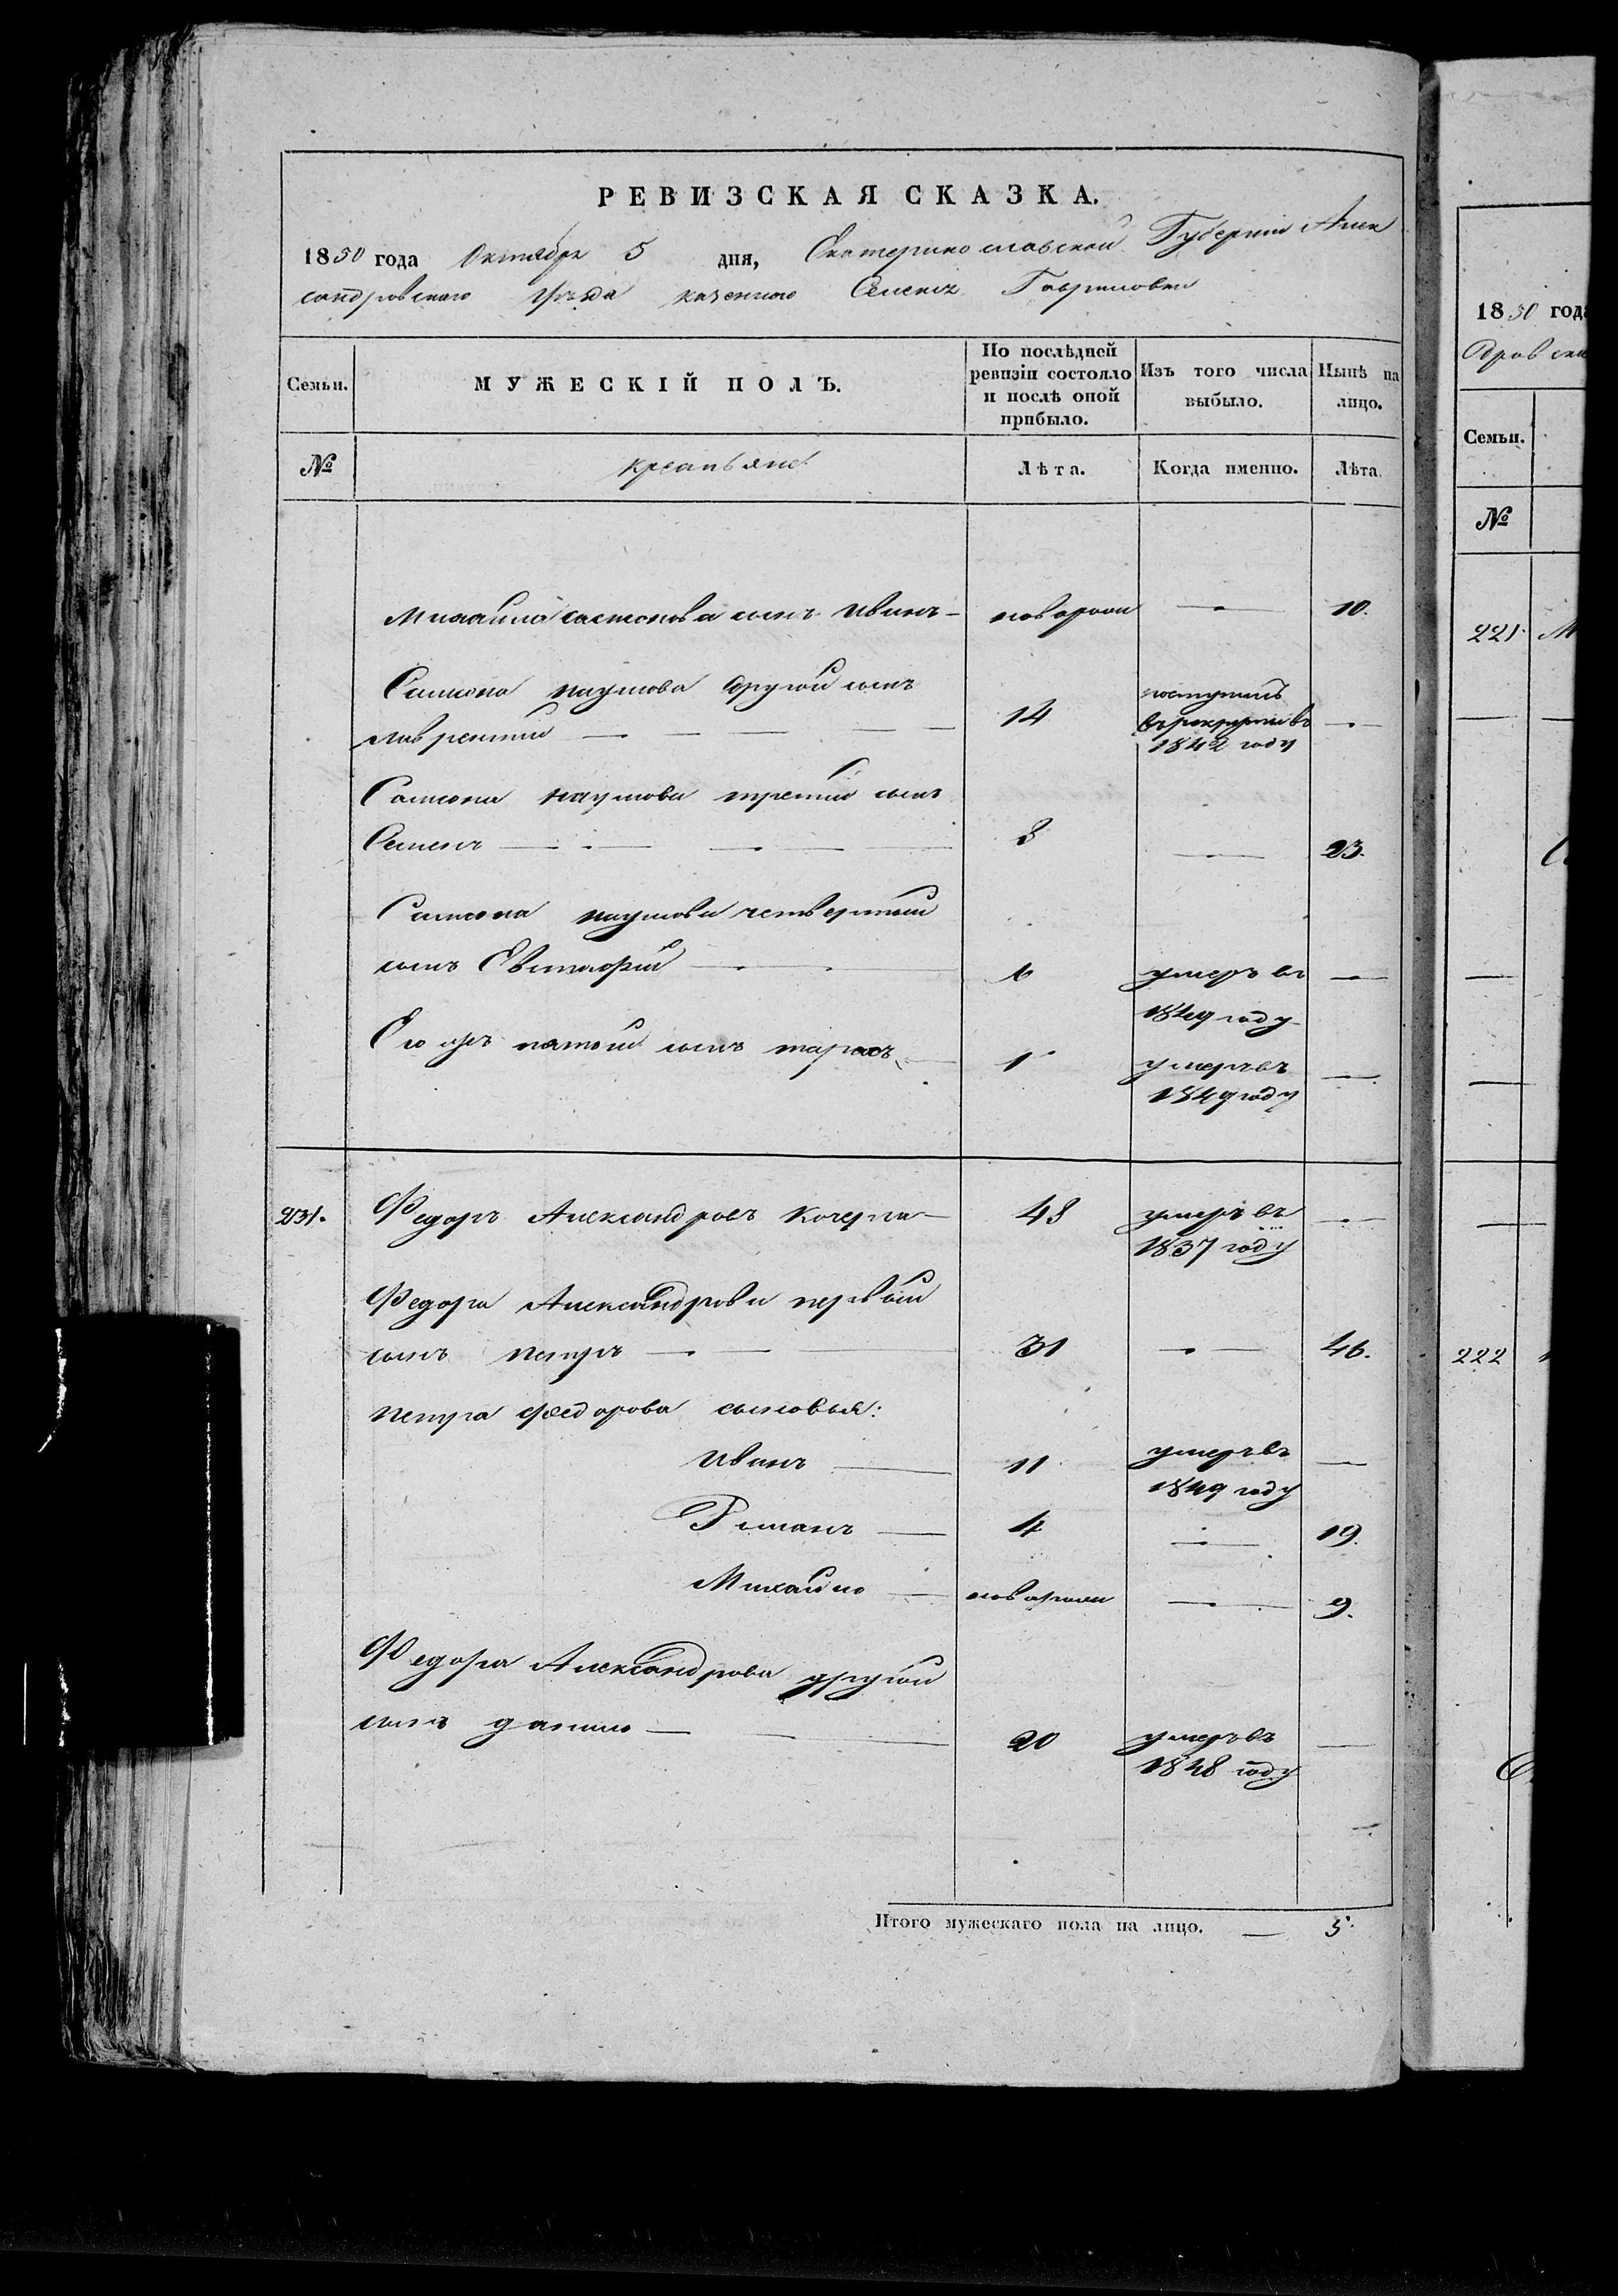 РЕВИЗСКАЯ СКАЗКА.
1850 года Октября 5 дня, Екатеринославской Губернии Алек
сандровского уезда казенного Селенія Гавриловки
Семьи. МУЖЕСКІЙ ПОЛЪ. По послѣдней ревизіи состояло и послѣ оной прибыло. Изъ того числа выбыло. Нынѣ на лицо.
№ крестьяне Лѣта. Когда именно. Лѣта.
Михайла сынъ Иванъ новорож 10.
Самсона наумова другой сынъ
лаврентій 14 поступилъ въ рекруты въ 1842 году
Самсона наумова третій сынъ
Семенъ 8 23.
Самсона наумова четвертый
сынъ Евстафій 6 умеръ въ
1849 году
Его жъ пятый сынъ тарасъ 1 умеръ въ
1849 году
231. Федоръ Александровъ Кочерга 48 умеръ въ
1837 году
Федора Александрова первый
сынъ петръ 31 46.
петра федорова сыновья:
Иванъ 11 умеръ въ
1849 году
Романъ 4 19.
Михайло новорож 9.
Федора Александрова другой
сынъ данило 20 умеръ въ
1848 году
Итого мужескаго пола на лицо. 5.
1850 года
Семьи.
№
221.
222